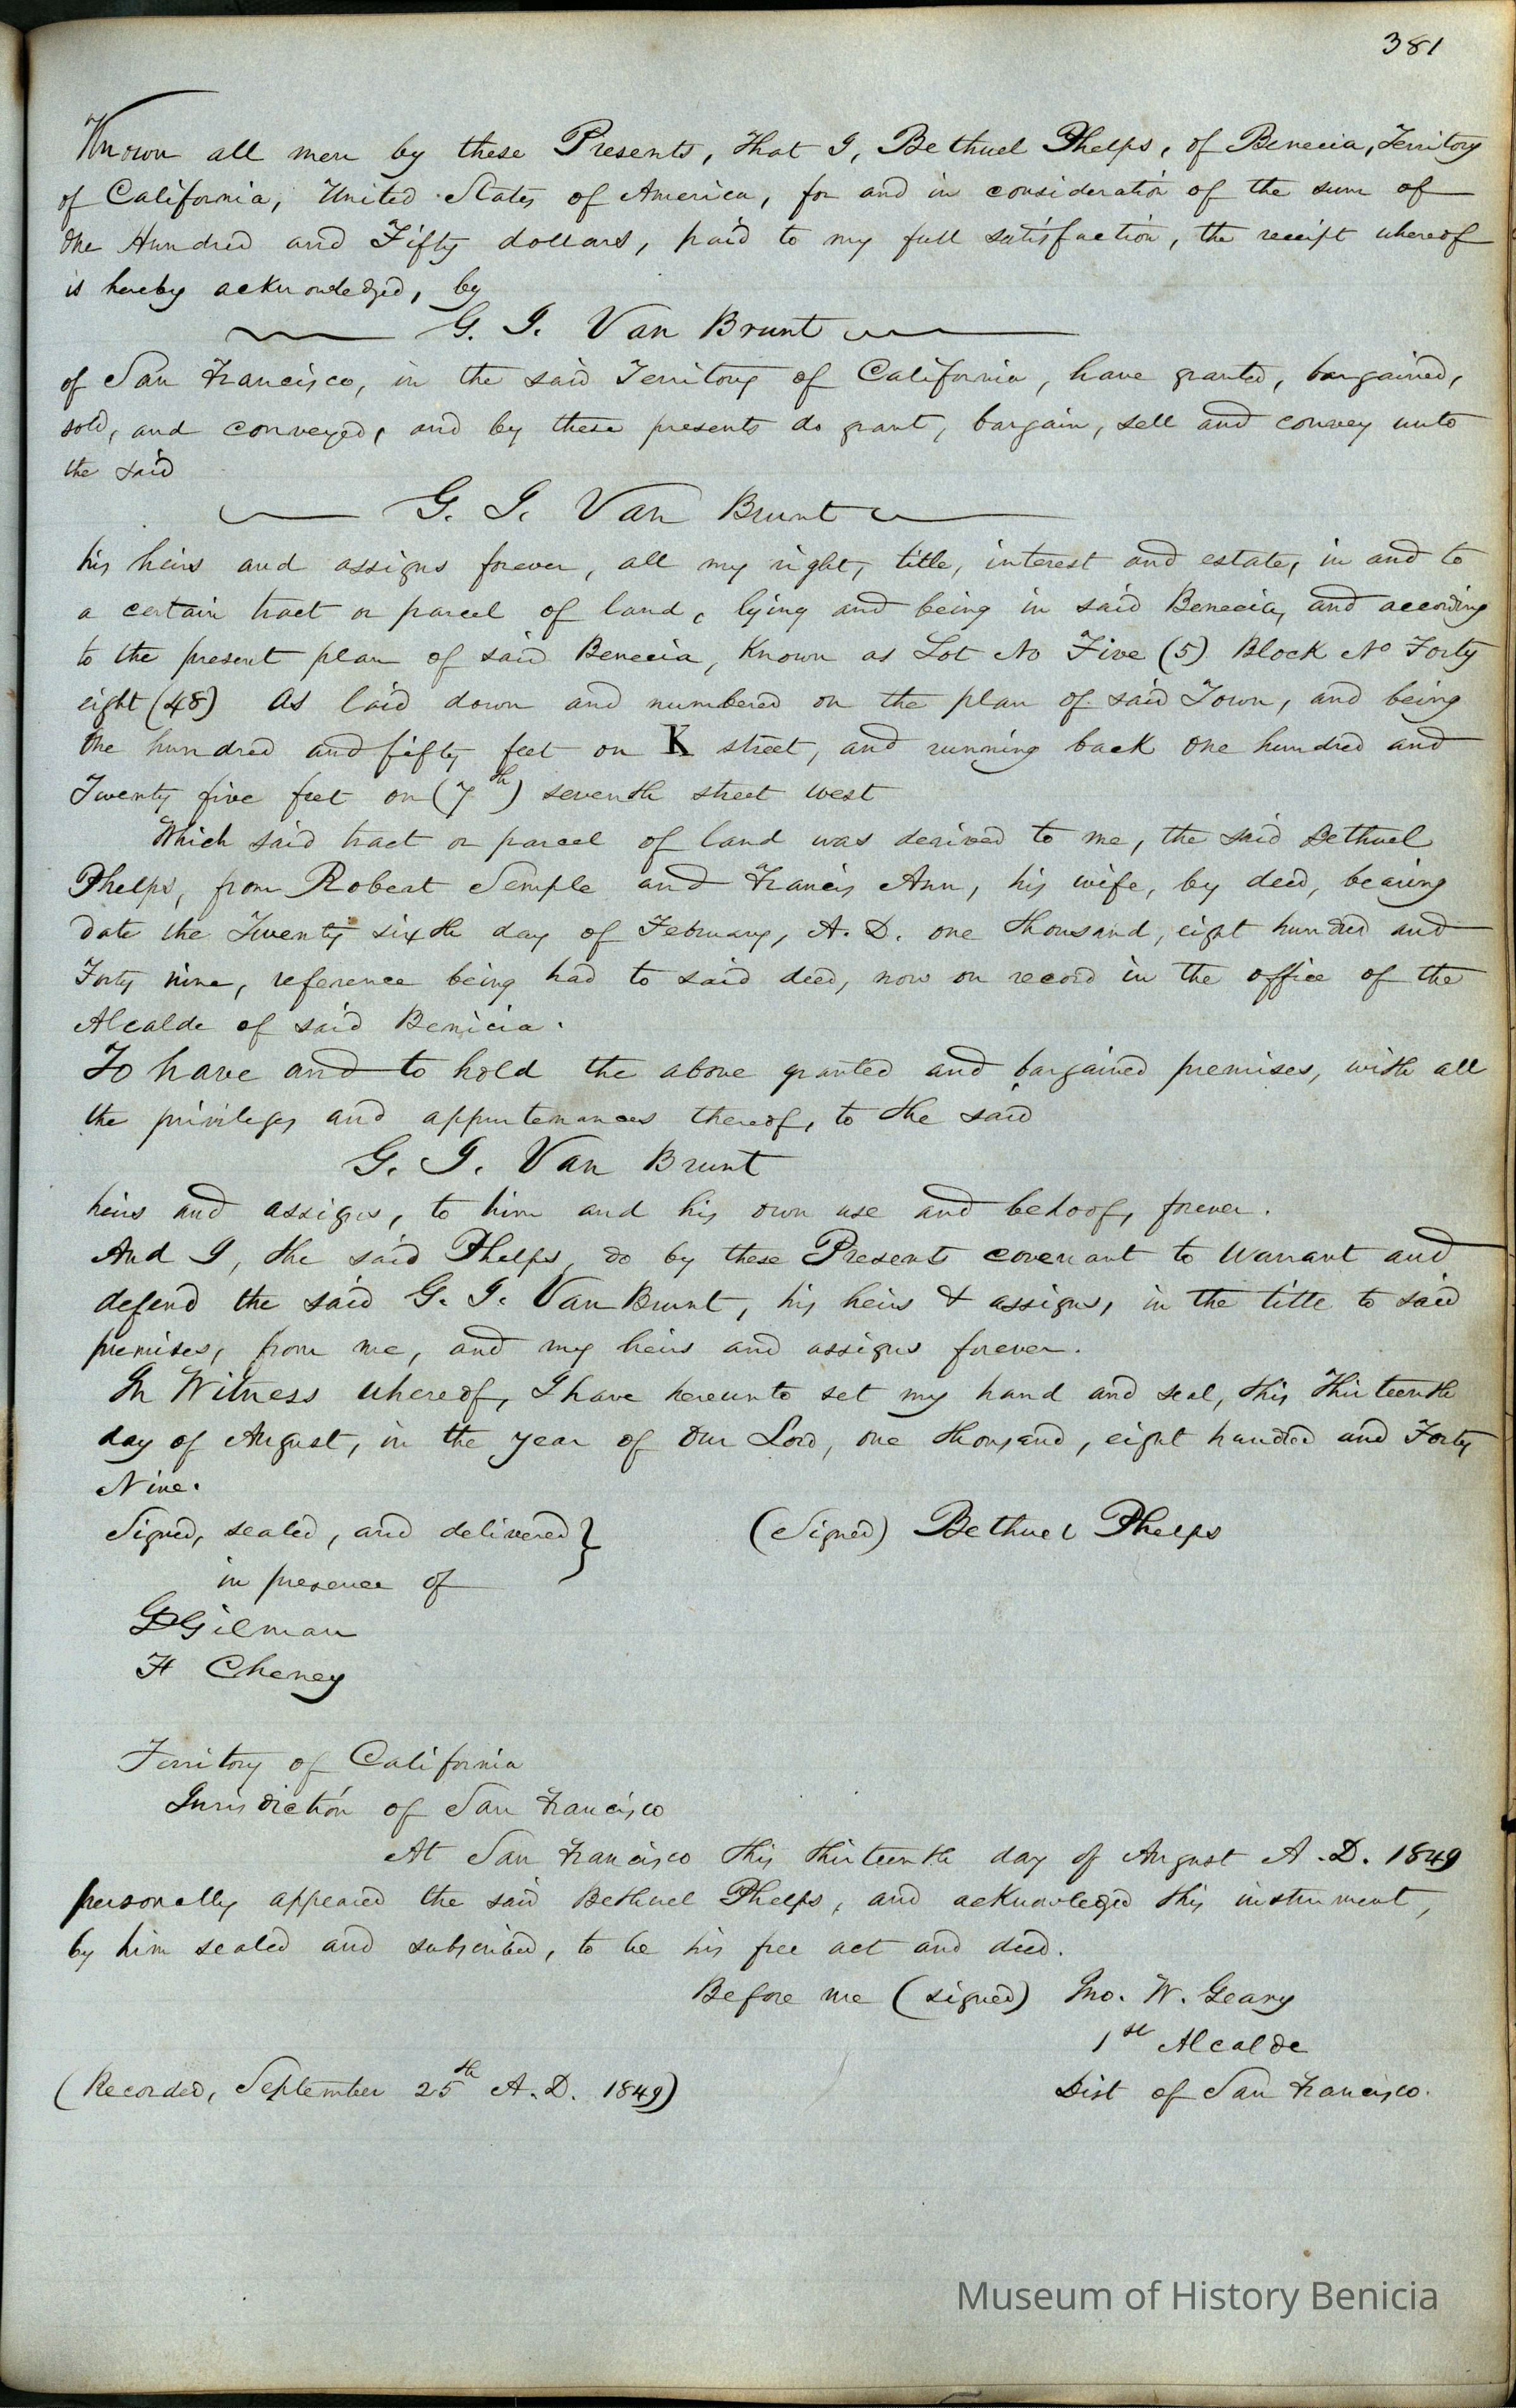 381
Known all men by these Presents, that I, Bethuel Phelps, of Benecia, Territory
of California, United States of America, for and in consideration of the sum of
One Hundred and Fifty dollars, paid to my full satisfaction, the receipt whereof
is hereby acknowledged, by
G. J. Van Brunt
of San Francisco, in the said Territory of California, have granted, bargained,
sold, and conveyed, and by these presents do grant, bargain, sell and convey unto
the said
G. J. Van Brunt
his heirs and assigns forever, all my right, title, interest and estate, in and to
a certain tract or parcel of land, lying and being in said Benecia, and according
to the present plan of said Benecia, Known as Lot No Five (5) Block No Forty
eight (48) As laid down and numbered on the plan of said Town, and being
One hundred and fifty feet on K street, and running back one hundred and
Twenty five feet on (7th) seventh street west
Which said tract or parcel of land was derived to me, the said Bethuel
Phelps, from Robert Semple and Francis Ann, his wife, by deed, bearing
date the Twenty sixth day of February, A. D. one thousand, eight hundred and
Forty nine, reference being had to said deed, now on record in the office of the
Alcalde of said Benicia.
To have and to hold the above granted and bargained premises, with all
the privileges and appurtenances thereof, to the said
G. J. Van Brunt
heirs and assigns, to him and his own use and behoof, forever.
And I, the said Phelps, do by these Presents covenant to Warrant and
defend the said G. J. Van Brunt, his heirs & assigns, in the title to said
premises, from me, and my heirs and assigns forever.
In Witness whereof, I have hereunto set my hand and seal, this thirteenth
day of August, in the year of Our Lord, one thousand, eight hundred and Forty
Nine.
Signed, sealed, and delivered } (Signed) Bethuel Phelps
in presence of
GD Gilman
F Cheney
Territory of California
Jurisdiction of San Francisco
At San Francisco this thirteenth day of August A. D. 1849
personally appeared the said Bethuel Phelps, and acknowledged this instrument,
by him sealed and subscribed, to be his free act and deed.
Before me (signed) Jno. W. Geary
1st Alcalde
(Recorded, September 25th A. D. 1849) Dist of San Francisco.
Museum of History Benicia